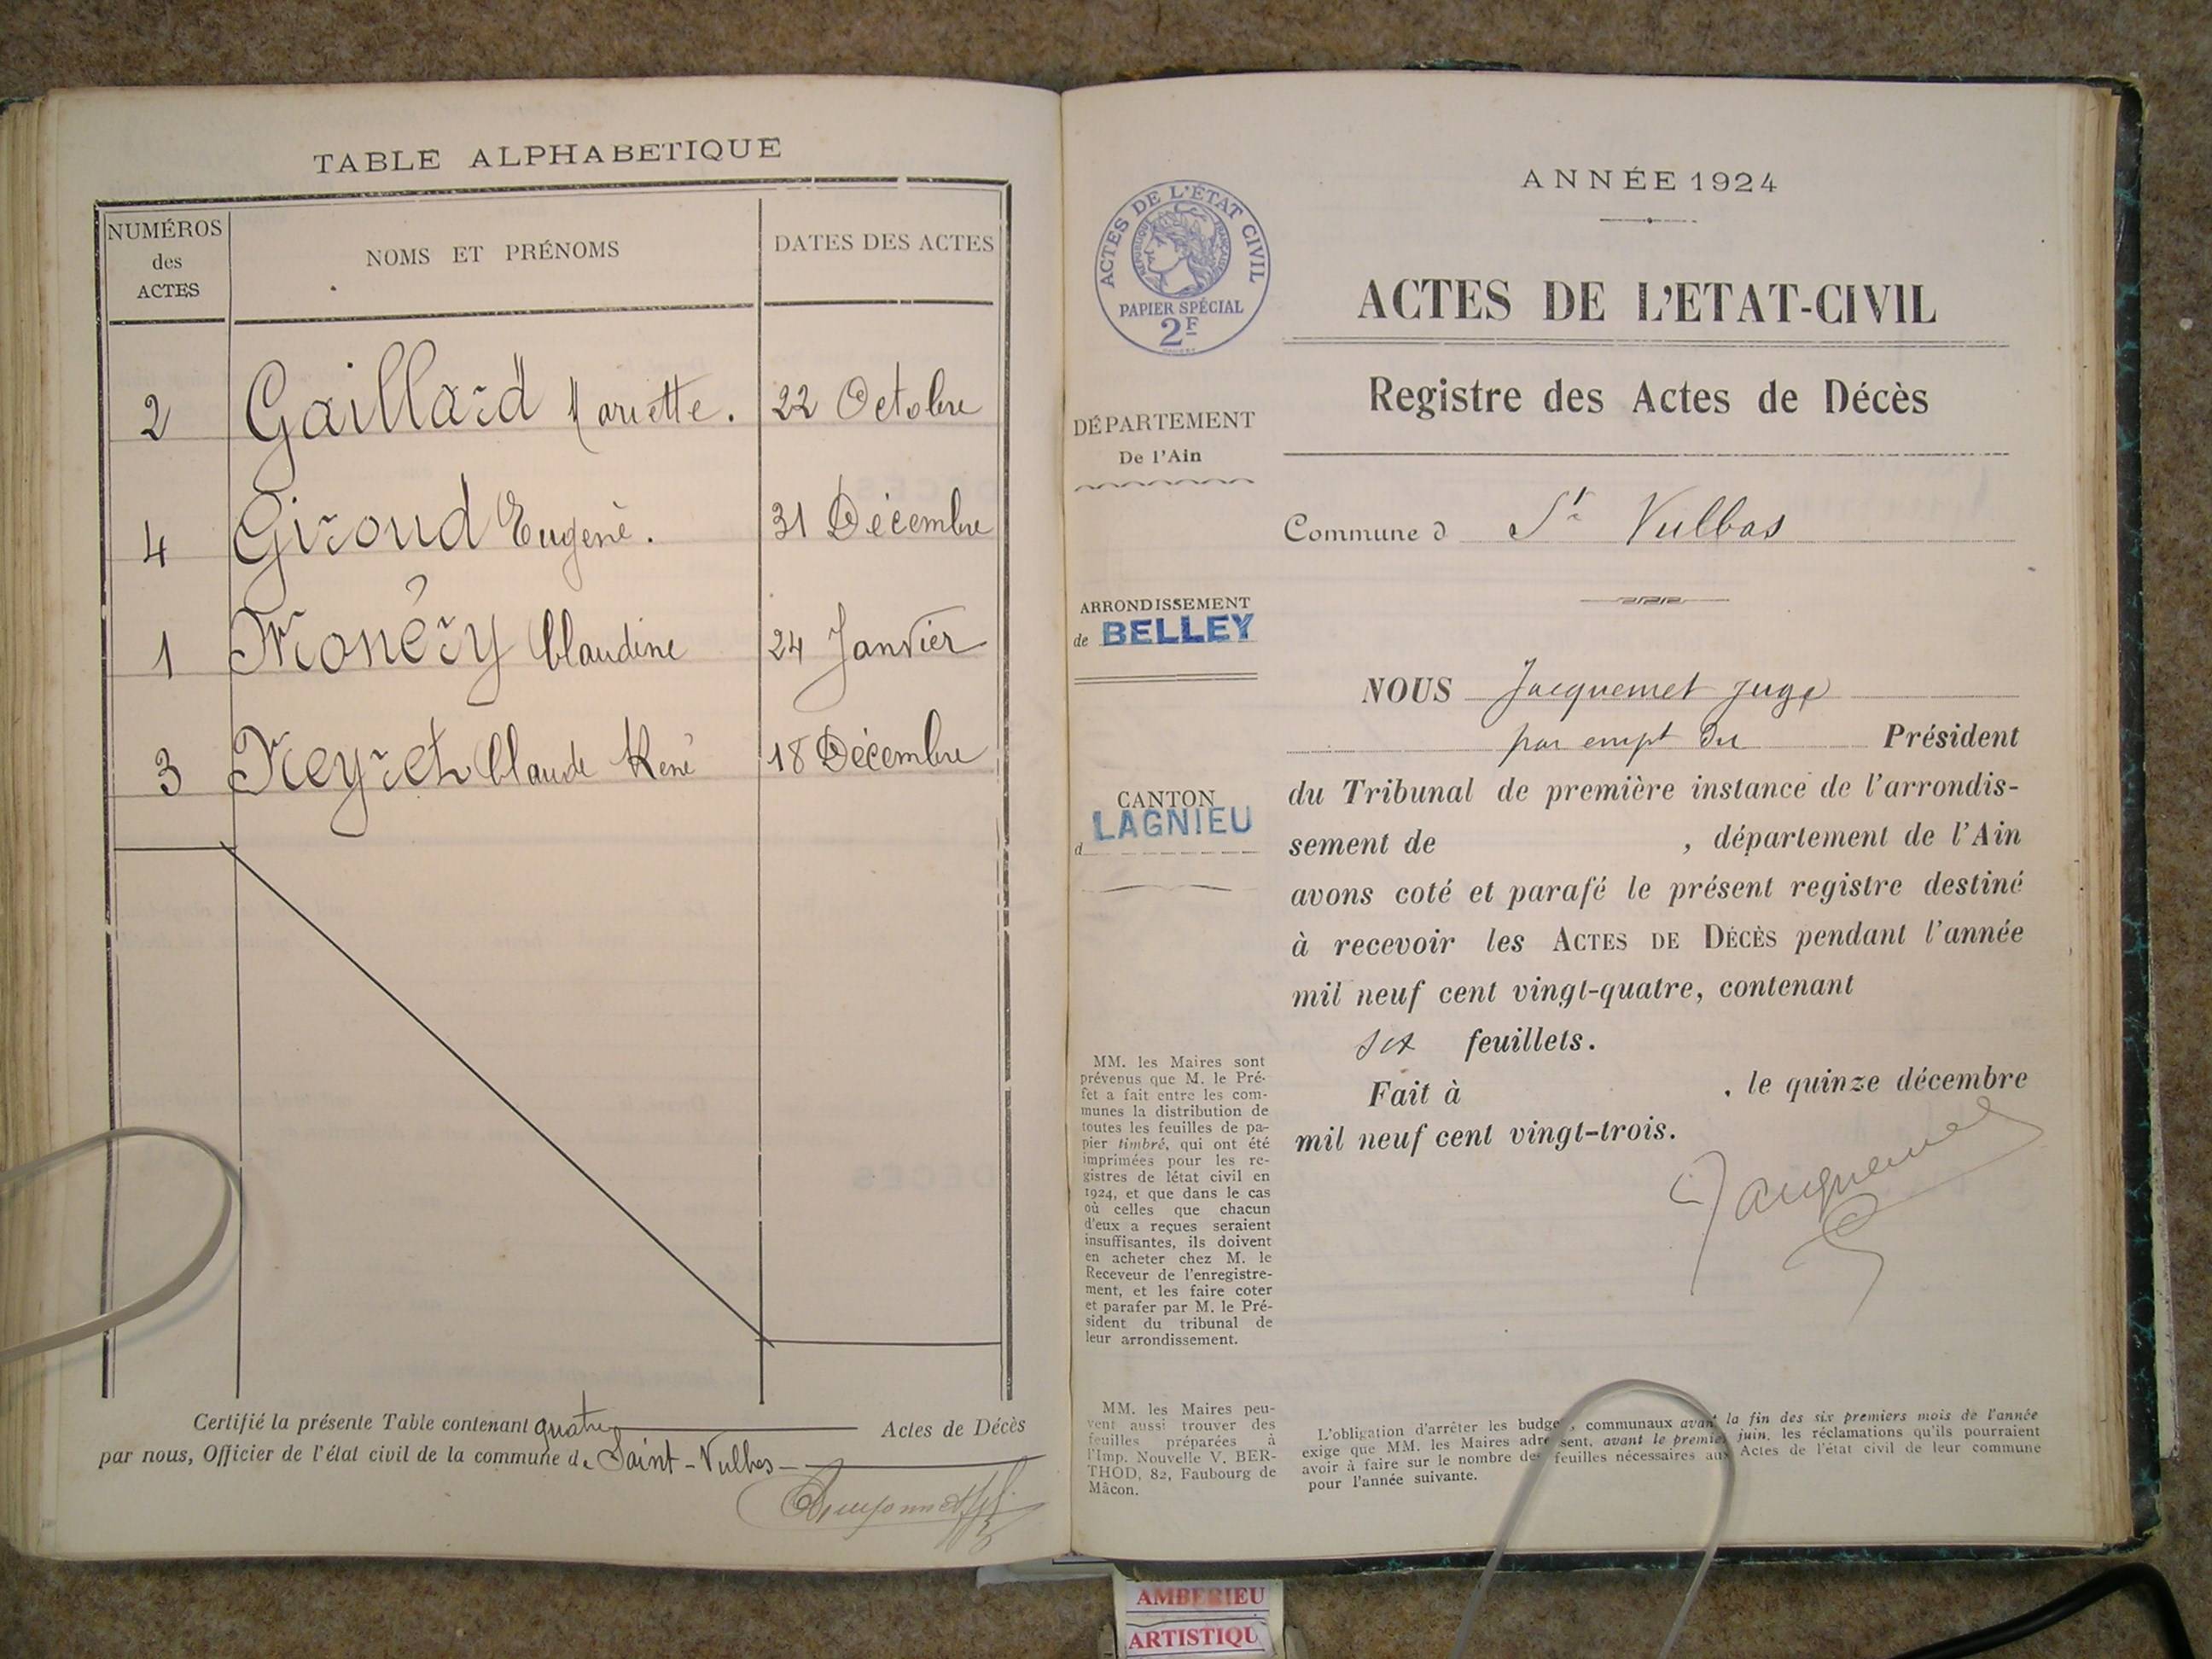 TABLE ALPHABETIQUE
NUMÉROS
des
ACTES
NOMS ET PRÉNOMS
DATES DES ACTES
2 Gaillard Mariette. 22 Octobre
4 Giroud Eugène. 31 Décembre
1 Monéry Claudine 24 Janvier
3 Neyret Claude René 18 Décembre
Certifié la présente Table contenant quatre Actes de Décès
par nous, Officier de l'état civil de la commune de Saint-Vulbas
ACTES DE L'ÉTAT CIVIL
RÉPUBLIQUE FRANÇAISE
PAPIER SPÉCIAL
2F
DÉPARTEMENT
De l'Ain
ARRONDISSEMENT
de BELLEY
CANTON
d LAGNIEU
MM. les Maires sont
prévenus que M. le Pré-
fet a fait entre les com-
munes la distribution de
toutes les feuilles de pa-
pier timbré, qui ont été
imprimées pour les re-
gistres de létat civil en
1924, et que dans le cas
où celles que chacun
d'eux a reçues seraient
insuffisantes, ils doivent
en acheter chez M. le
Receveur de l'enregistre-
ment, et les faire coter
et parafer par M. le Pré-
sident du tribunal de
leur arrondissement.
MM. les Maires peu-
vent aussi trouver des
feuilles préparées à
l'Imp. Nouvelle V. BER-
THOD, 82, Faubourg de
Mâcon.
ANNÉE 1924
ACTES DE L'ETAT-CIVIL
Registre des Actes de Décès
Commune d St Vulbas
NOUS Jacquemet juge
par empt du Président
du Tribunal de première instance de l'arrondis-
sement de , département de l'Ain
avons coté et parafé le présent registre destiné
à recevoir les ACTES DE DÉCÈS pendant l'année
mil neuf cent vingt-quatre, contenant
six feuillets.
Fait à , le quinze décembre
mil neuf cent vingt-trois.
Jacquemet
L'obligation d'arrêter les budgets communaux avant la fin des six premiers mois de l'année
exige que MM. les Maires adressent, avant le premier juin, les réclamations qu'ils pourraient
avoir à faire sur le nombre des feuilles nécessaires aux Actes de l'état civil de leur commune
pour l'année suivante.
AMBERIEU
ARTISTIQU